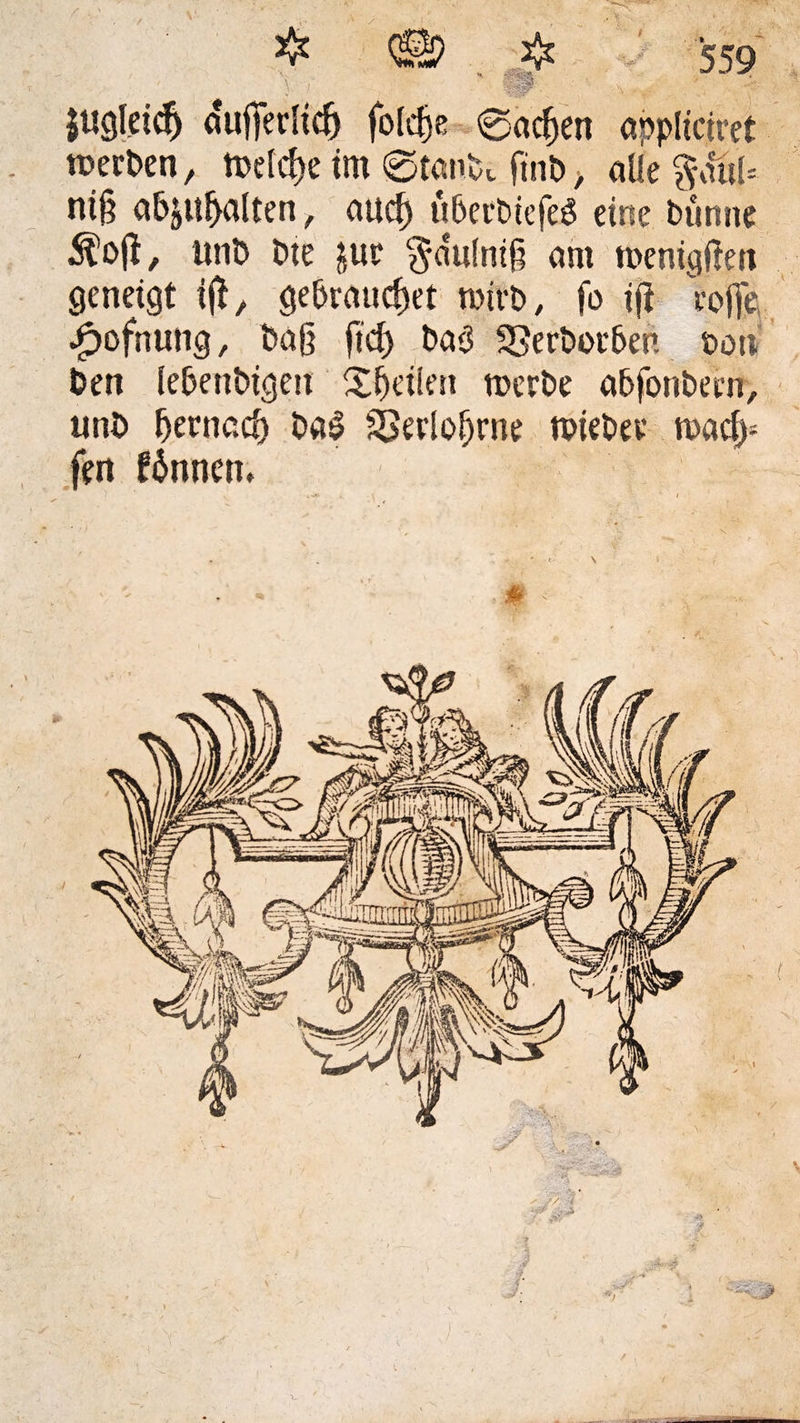 559
zugleich äusserlich solche Sachen appliciret
werden, welche im Stande sind, alle Fäul-
niß abzuhalten, auch überdieses eine dünne
Kost, und die zur Fäulniß am wenigsten
geneigt ist, gebrauchet wird, so ist
Hofnung, daß sich das Verdorben von
den lebendigen Theilen werde absondern,
und hernach das Verlohrne wieder wach-
sen können.